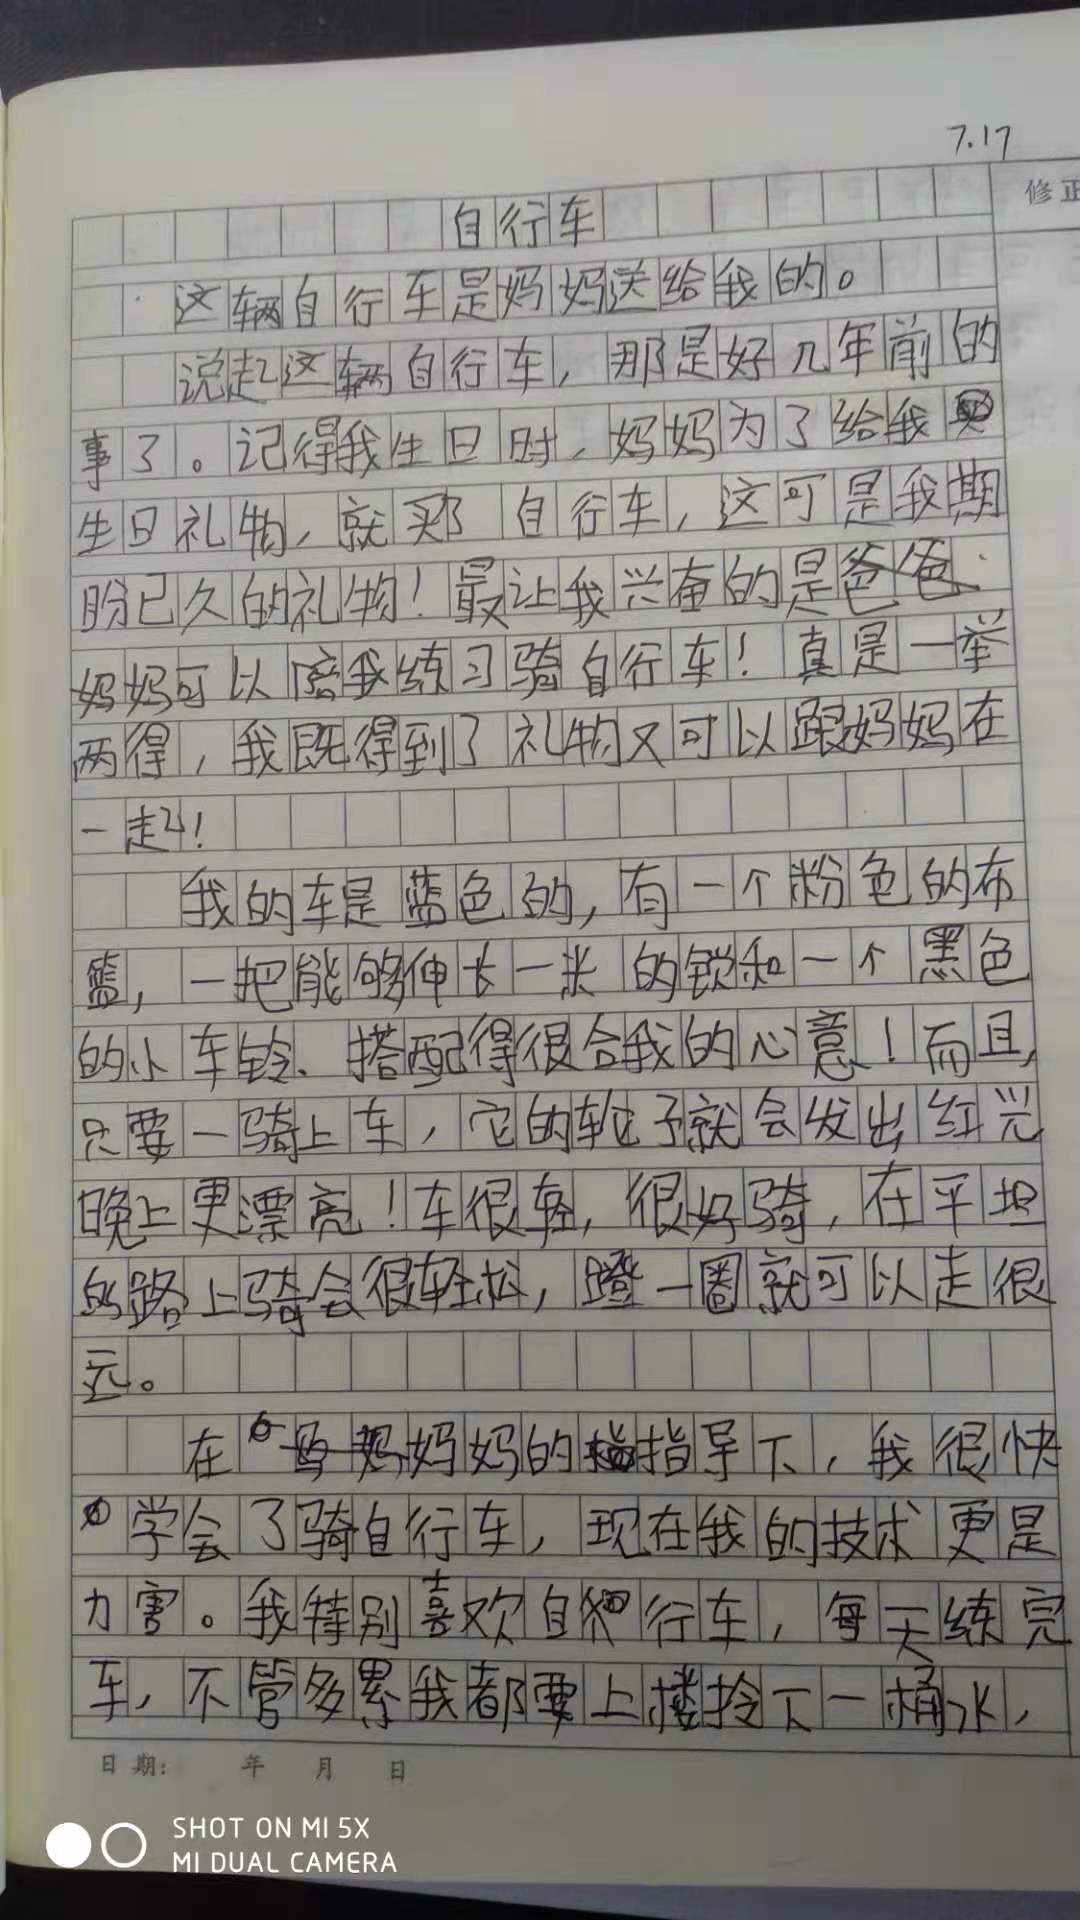 7.17
修正
自行车
这辆自行车是妈妈送给我的。
说起这辆自行车，那是好几年前的
事了。记得我生日时，妈妈为了给我
生日礼物，就买了自行车，这可是我期
盼已久的礼物！最让我兴奋的是爸爸
妈妈可以陪我练习骑自行车！真是一举
两得，我既得到了礼物又可以跟妈妈在
一起！
我的车是蓝色的，有一个粉色的布
篮，一把能够伸长一米的锁和一个黑色
的小车铃、搭配得很合我的心意！而且，
只要一骑上车，它的轮子就会发出红光
晚上更漂亮！车很轻，很好骑，在平坦
的路上骑会很轻松，蹬一圈就可以走很
远。
在妈妈的指导下，我很快
学会了骑自行车，现在我的技术更是
力害。我特别喜欢自行车，每天练完
车，不管多累我都要上楼拎下一桶水，
日期： 年 月 日
SHOT ON MI 5X
MI DUAL CAMERA